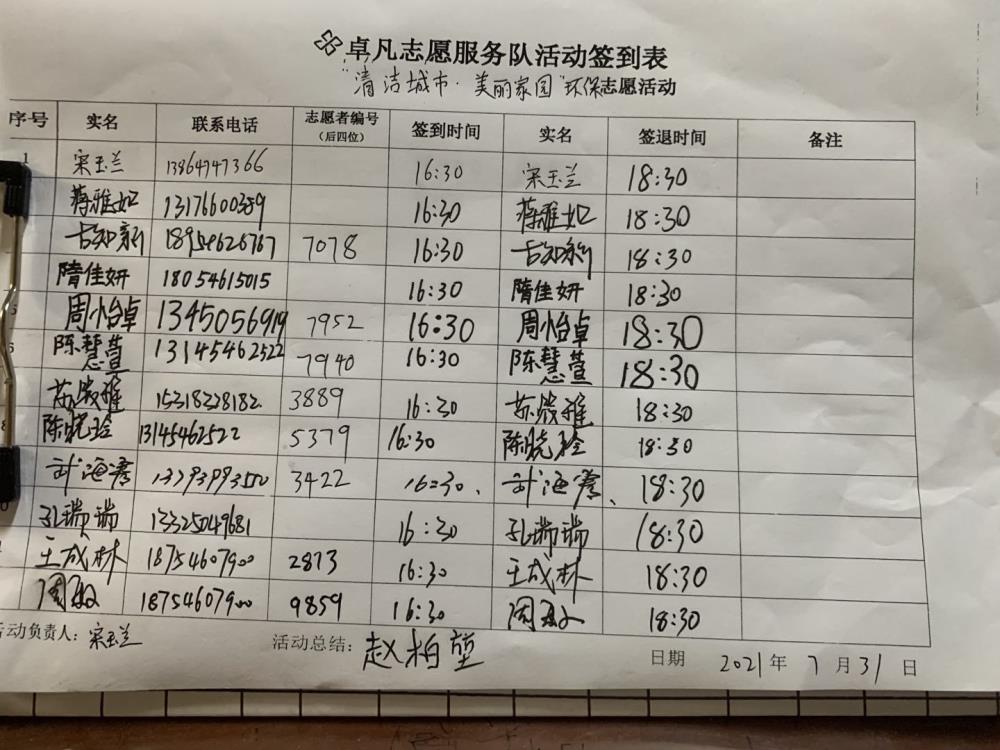 卓凡志愿服务队活动签到表
"清洁城市·美丽家园"环保志愿活动
序号 实名 联系电话 志愿者编号（后四位） 签到时间 实名 签退时间 备注
1 宋玉兰 13864747366 16:30 宋玉兰 18:30
蒋雅如 13176600389 16:30 蒋雅如 18:30
古知新 18954626767 7078 16:30 古知新 18:30
隋佳妍 18054615015 16:30 隋佳妍 18:30
5 周小怡卓 1345056919 7952 16:30 周小怡卓 18:30
6 陈慧萱 13145462522 7940 16:30 陈慧萱 18:30
苏筱雅 15318328182 3889 16:30 苏筱雅 18:30
8 陈晓玲 13145462522 5379 16:30 陈晓玲 18:30
海 3422 16:30、 海 、 18:30
孔瑞瑞 13325049681 16:30 孔瑞瑞 18:30
王成林 18754607900 2813 16:30 王成林 18:30
周敏 18754607900 9859 16:30 周敏 18:30
活动负责人：宋玉兰 活动总结：赵柏堃 日期 2021年7月31日